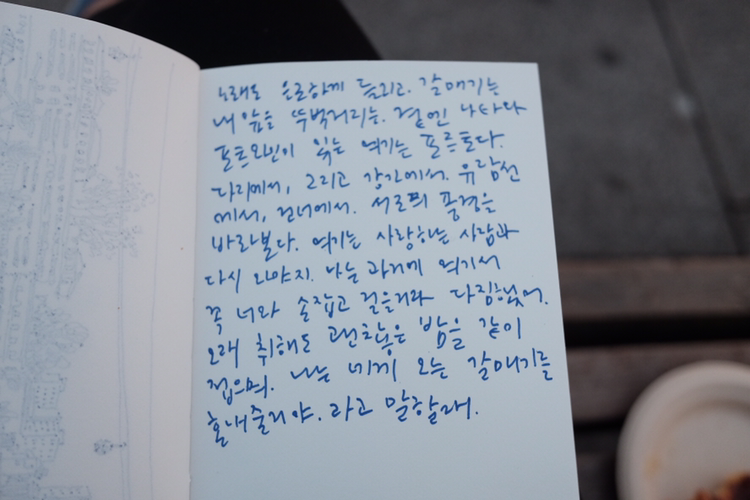 노래도 은은하게 들리고. 갈매기는
내 앞을 뚜벅거리는. 곁엔 나타와
포트와인이 있는 여기는 포르토다.
다리에서, 그리고 강가에서. 유람선
에서, 건너에서. 서로의 풍경을
바라본다. 여기는 사랑하는 사람과
다시 와야지. 나는 과거에 여기서
꼭 너와 손잡고 걸을거라 다짐했었어.
오래 취해도 괜찮은 밤을 같이
접으며. 나는 네게 오는 갈매기를
혼내줄거야. 라고 말할래.